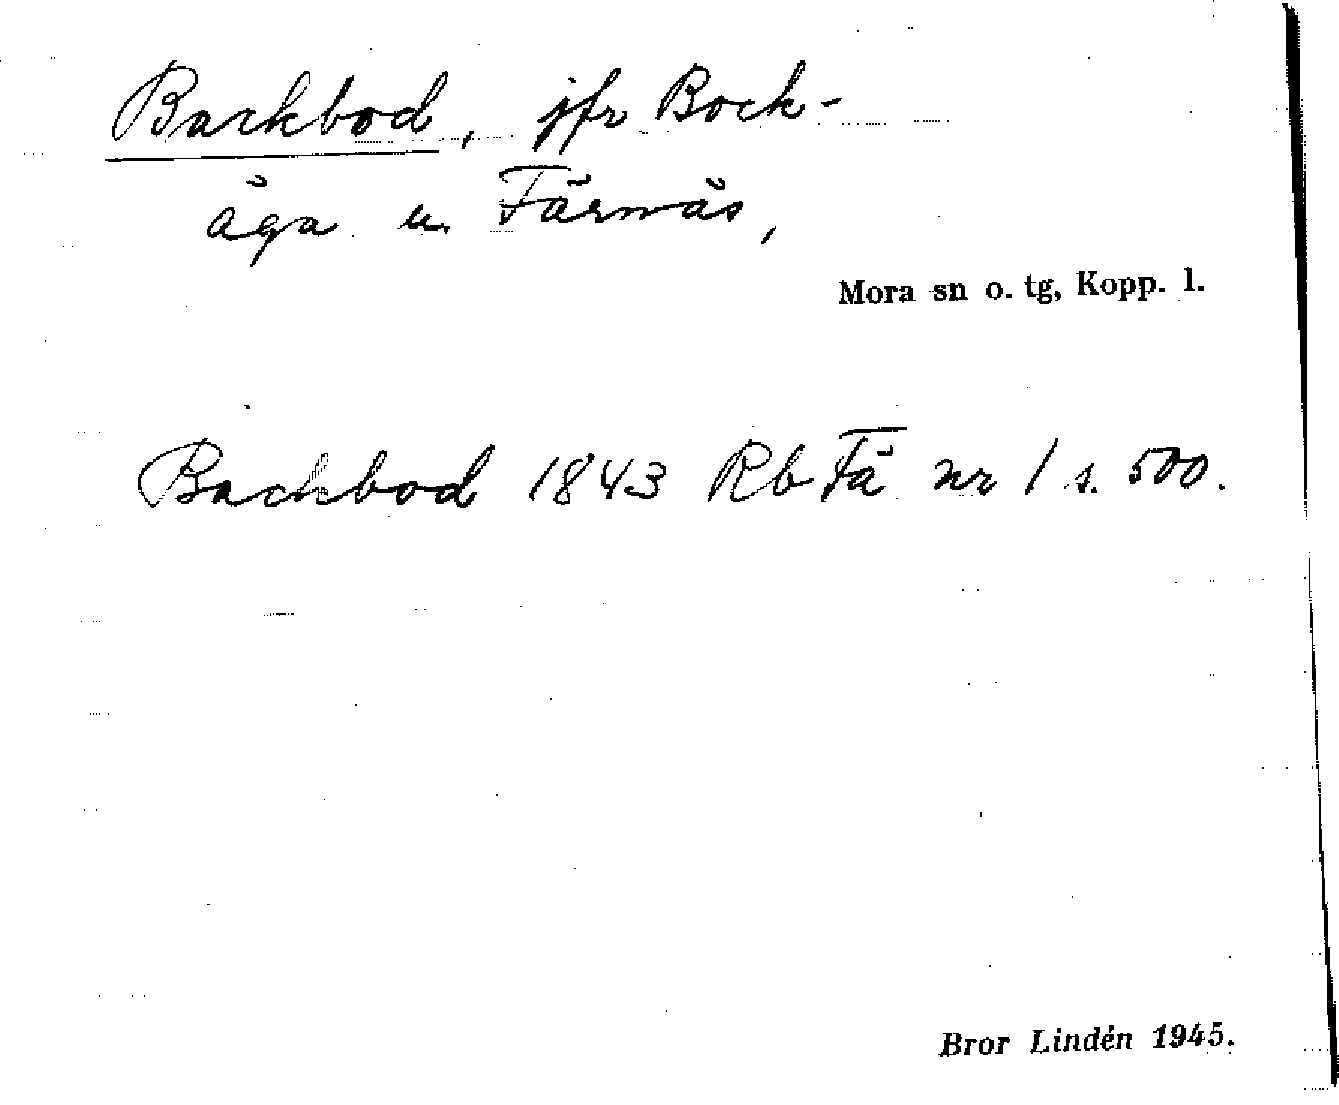 Backbod, jfr Bock-
äga u. Färnäs,
Mora sn o. tg, Kopp. l.
Backbod 1843 Rb Fä nr 1 s. 500.
Bror Lindén 1945.